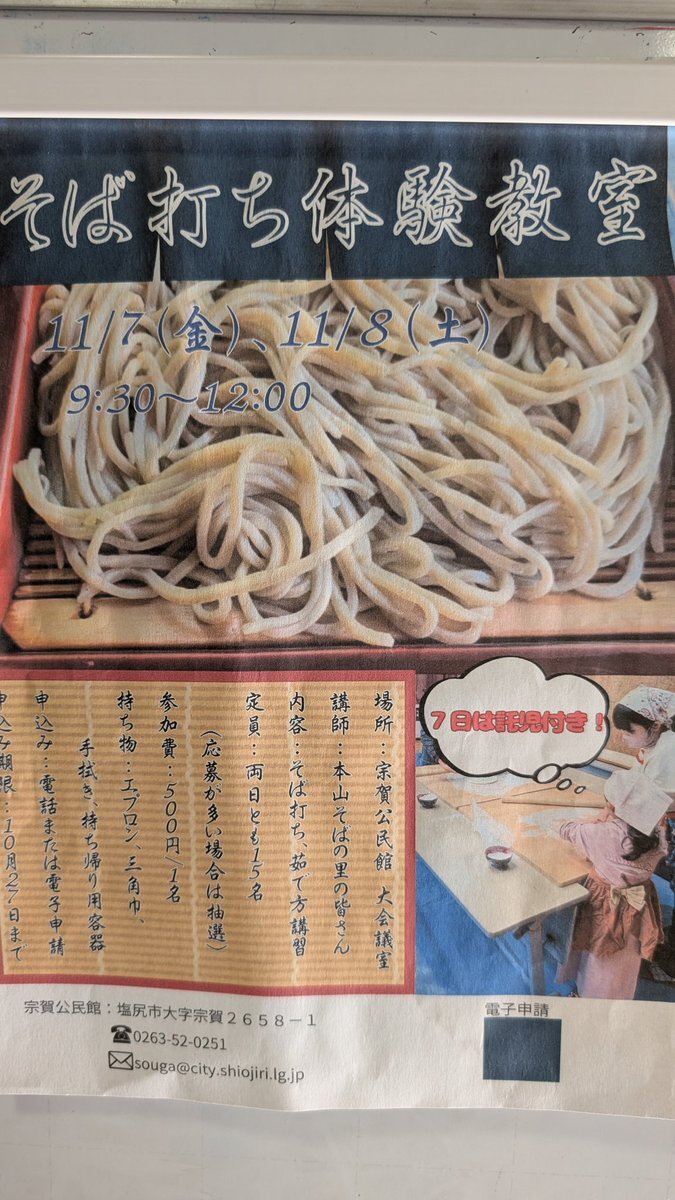 そば打ち体験教室
11/7(金)、11/8(土)
9:30～12:00
7日は託児付き！
場所…宗賀公民館 大会議室
講師…本山そばの里の皆さん
内容…そば打ち、茹で方講習
定員…両日とも15名
（応募が多い場合は抽選）
参加費…500円/1名
持ち物…エプロン、三角巾、
手拭き、持ち帰り用容器
申込み…電話または電子申請
申込み期限…10月27日まで
宗賀公民館：塩尻市大字宗賀２６５８－１
0263-52-0251
souga@city.shiojiri.lg.jp
電子申請